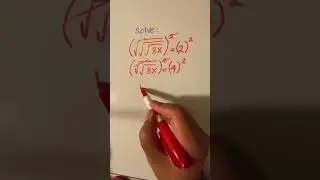 solve:
(√√√8x)² = (2)²
(√√8x)² = (4)²